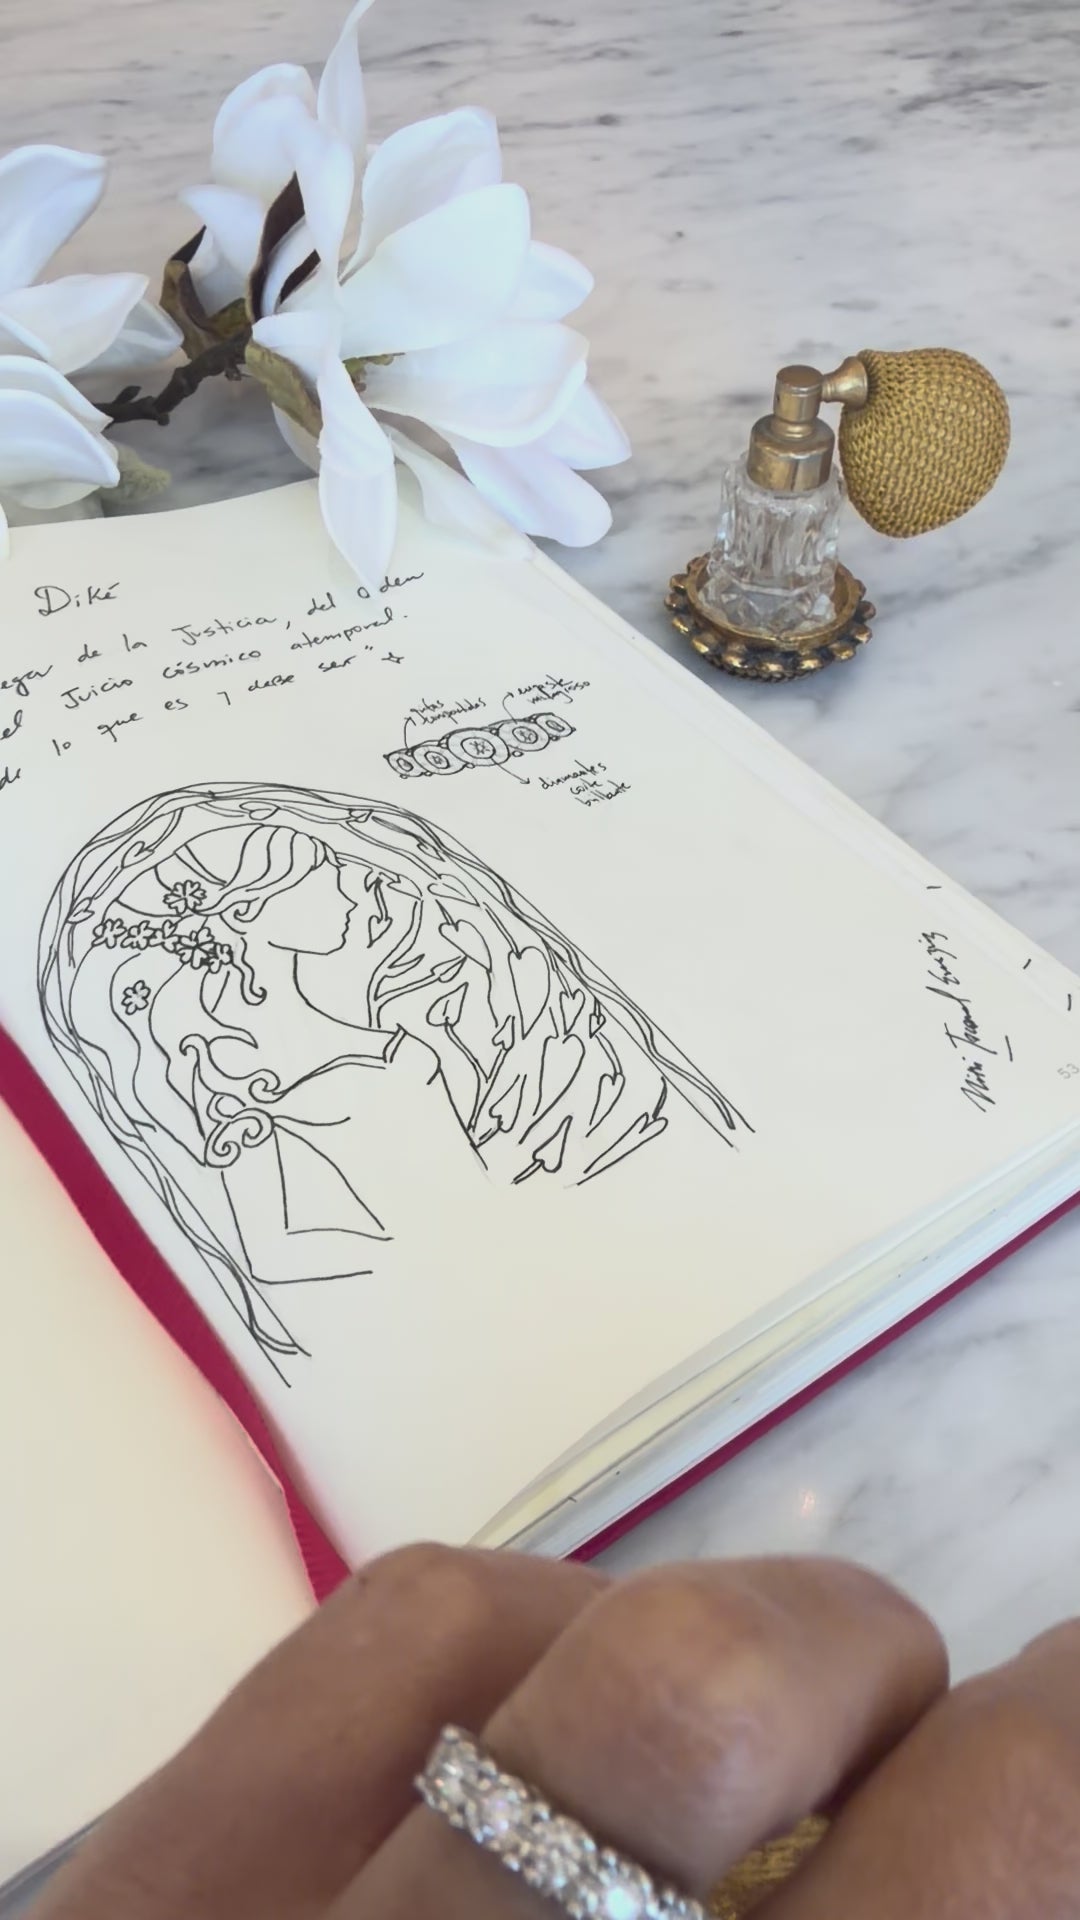 Diké
de la Justicia, del Orden
el Juicio cósmico atemporal.
de lo que es y debe ser"
garras
compartidas
engaste
milagroso
diamantes
corte
brillante
53